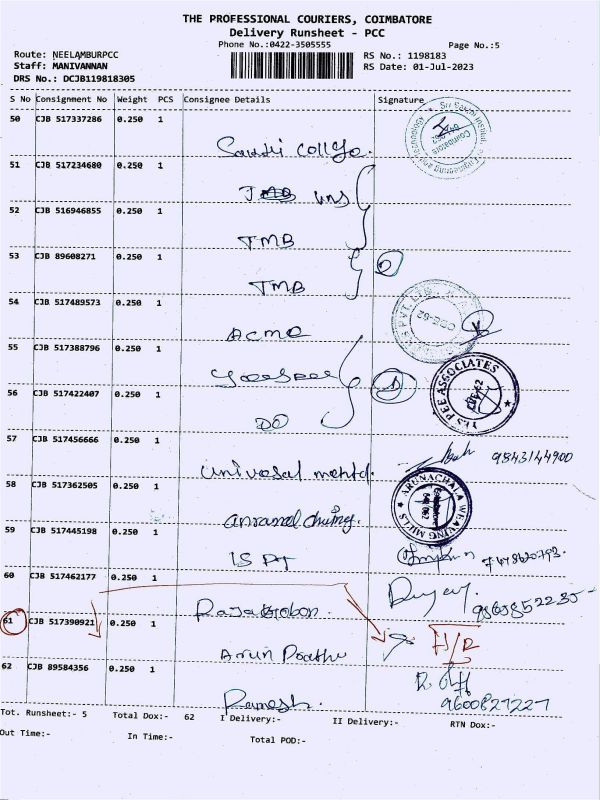 THE PROFESSIONAL COURIERS, COIMBATORE
Delivery Runsheet - PCC
Phone No.:0422-3505555
Page No.:5
Route: NEELAMBURPCC
RS No.: 1198183
Staff: MANIVANNAN
RS Date: 01-Jul-2023
DRS No.: DCJB119818305
S No Consignment No Weight PCS Consignee Details Signature
50 CJB 517337286 0.250 1
51 CJB 517234680 0.250 1
52 CJB 516946855 0.250 1
TMB
53 CJB 89608271 0.250 1
TMB
54 CJB 517489573 0.250 1
ACMO
55 CJB 517388796 0.250 1
YES PEE ASSOCIATES
56 CJB 517422407 0.250 1
DO
57 CJB 517456666 0.250 1
9843144900
Universal
58 CJB 517362505 0.250 1
ARUNACHALA WEAVING MILLS
59 CJB 517445198 0.250 1
60 CJB 517462177 0.250 1
61 CJB 517390921 0.250 1
Arun Prabhu
62 CJB 89584356 0.250 1
9600827227
Ramesh
Tot. Runsheet:- 5 Total Dox:- 62 I Delivery:- II Delivery:- RTN Dox:-
Out Time:- In Time:- Total POD:-